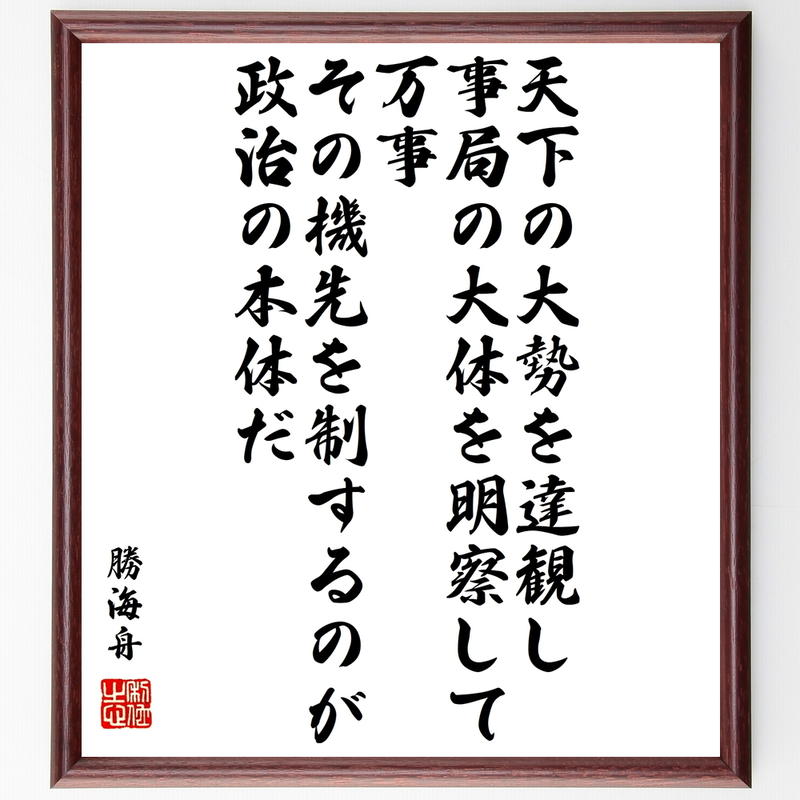 天下の大勢を達観し
事局の大体を明察して
万事
その機先を制するのが
政治の本体だ
勝海舟